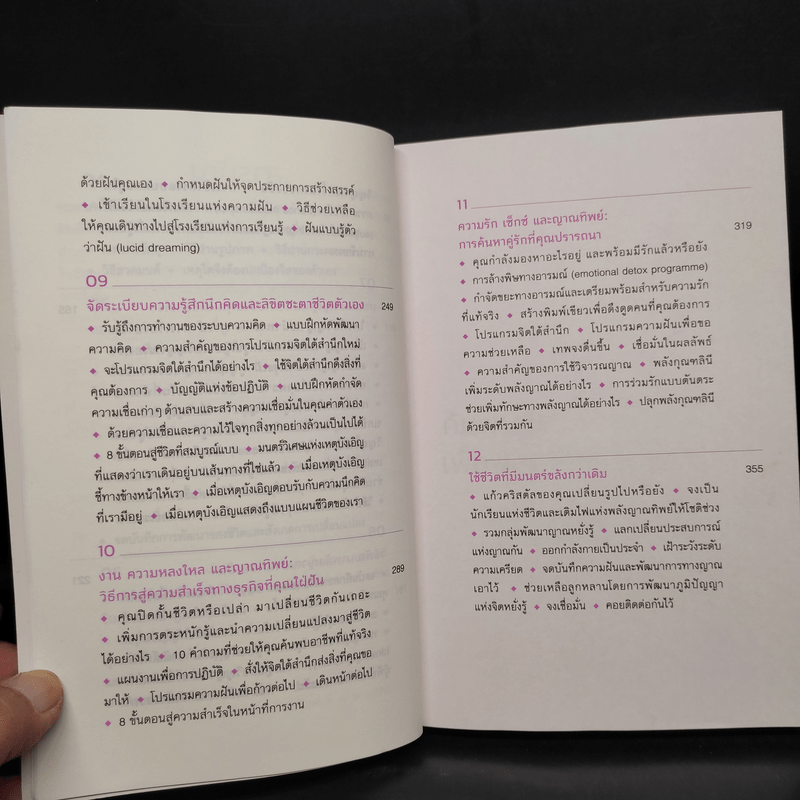 ด้วยฝันคุณเอง ◆ กำหนดฝันให้จุดประกายการสร้างสรรค์
◆ เข้าเรียนในโรงเรียนแห่งความฝัน ◆ วิธีช่วยเหลือ
ให้คุณเดินทางไปสู่โรงเรียนแห่งการเรียนรู้ ◆ ฝันแบบรู้ตัว
ว่าฝัน (lucid dreaming)
09
จัดระเบียบความรู้สึกนึกคิดและลิขิตชะตาชีวิตตัวเอง 249
◆ รับรู้ถึงการทำงานของระบบความคิด ◆ แบบฝึกหัดพัฒนา
ความคิด ◆ ความสำคัญของการโปรแกรมจิตใต้สำนึกใหม่
◆ จะโปรแกรมจิตใต้สำนึกได้อย่างไร ◆ ใช้จิตใต้สำนึกดึงสิ่งที่
คุณต้องการ ◆ บัญญัติแห่งข้อปฏิบัติ ◆ แบบฝึกหัดกำจัด
ความเชื่อเก่าๆ ด้านลบและสร้างความเชื่อมั่นในคุณค่าตัวเอง
◆ ด้วยความเชื่อและความไว้ใจทุกสิ่งทุกอย่างล้วนเป็นไปได้
◆ 8 ขั้นตอนสู่ชีวิตที่สมบูรณ์แบบ ◆ มนตร์วิเศษแห่งเหตุบังเอิญ
ที่แสดงว่าเราเดินอยู่บนเส้นทางที่ใช่แล้ว ◆ เมื่อเหตุบังเอิญ
ชี้ทางข้างหน้าให้เรา ◆ เมื่อเหตุบังเอิญตอบรับกับความนึกคิด
ที่เรามีอยู่ ◆ เมื่อเหตุบังเอิญแสดงถึงแบบแผนชีวิตของเรา
10
งาน ความหลงใหล และญาณทิพย์:
วิธีการสู่ความสำเร็จทางธุรกิจที่คุณใฝ่ฝัน 289
◆ คุณปิดกั้นชีวิตหรือเปล่า มาเปลี่ยนชีวิตกันเถอะ
◆ เพิ่มการตระหนักรู้และนำความเปลี่ยนแปลงมาสู่ชีวิต
ได้อย่างไร ◆ 10 คำถามที่ช่วยให้คุณค้นพบอาชีพที่แท้จริง
◆ แผนงานเพื่อการปฏิบัติ ◆ สั่งให้จิตใต้สำนึกส่งสิ่งที่คุณขอ
มาให้ ◆ โปรแกรมความฝันเพื่อก้าวต่อไป ◆ เดินหน้าต่อไป
◆ 8 ขั้นตอนสู่ความสำเร็จในหน้าที่การงาน
11
ความรัก เซ็กซ์ และญาณทิพย์: 319
การค้นหาคู่รักที่คุณปรารถนา
◆ คุณกำลังมองหาอะไรอยู่ และพร้อมมีรักแล้วหรือยัง
◆ การล้างพิษทางอารมณ์ (emotional detox programme)
◆ กำจัดขยะทางอารมณ์และเตรียมพร้อมสำหรับความรัก
ที่แท้จริง ◆ สร้างพิมพ์เขียวเพื่อดึงดูดคนที่คุณต้องการ
◆ โปรแกรมจิตใต้สำนึก ◆ โปรแกรมความฝันเพื่อขอ
ความช่วยเหลือ ◆ เทพจงตื่นขึ้น ◆ เชื่อมั่นในผลลัพธ์
◆ ความสำคัญของการใช้วิจารณญาณ ◆ พลังกุณฑลินี
เพิ่มระดับพลังญาณได้อย่างไร ◆ การร่วมรักแบบตันตระ
ช่วยเพิ่มทักษะทางพลังญาณได้อย่างไร ◆ ปลุกพลังกุณฑลินี
ด้วยจิตที่รวมกัน
12
ใช้ชีวิตที่มีมนตร์ขลังกว่าเดิม 355
◆ แก้วคริสตัลของคุณเปลี่ยนรูปไปหรือยัง ◆ จงเป็น
นักเรียนแห่งชีวิตและเติมไฟแห่งพลังญาณทิพย์ให้โชติช่วง
◆ รวมกลุ่มพัฒนาญาณหยั่งรู้ ◆ แลกเปลี่ยนประสบการณ์
แห่งญาณกัน ◆ ออกกำลังกายเป็นประจำ ◆ เฝ้าระวังระดับ
ความเครียด ◆ จดบันทึกความฝันและพัฒนาการทางญาณ
เอาไว้ ◆ ช่วยเหลือลูกหลานโดยการพัฒนาภูมิปัญญา
แห่งจิตหยั่งรู้ ◆ จงเชื่อมั่น ◆ คอยติดต่อกันไว้